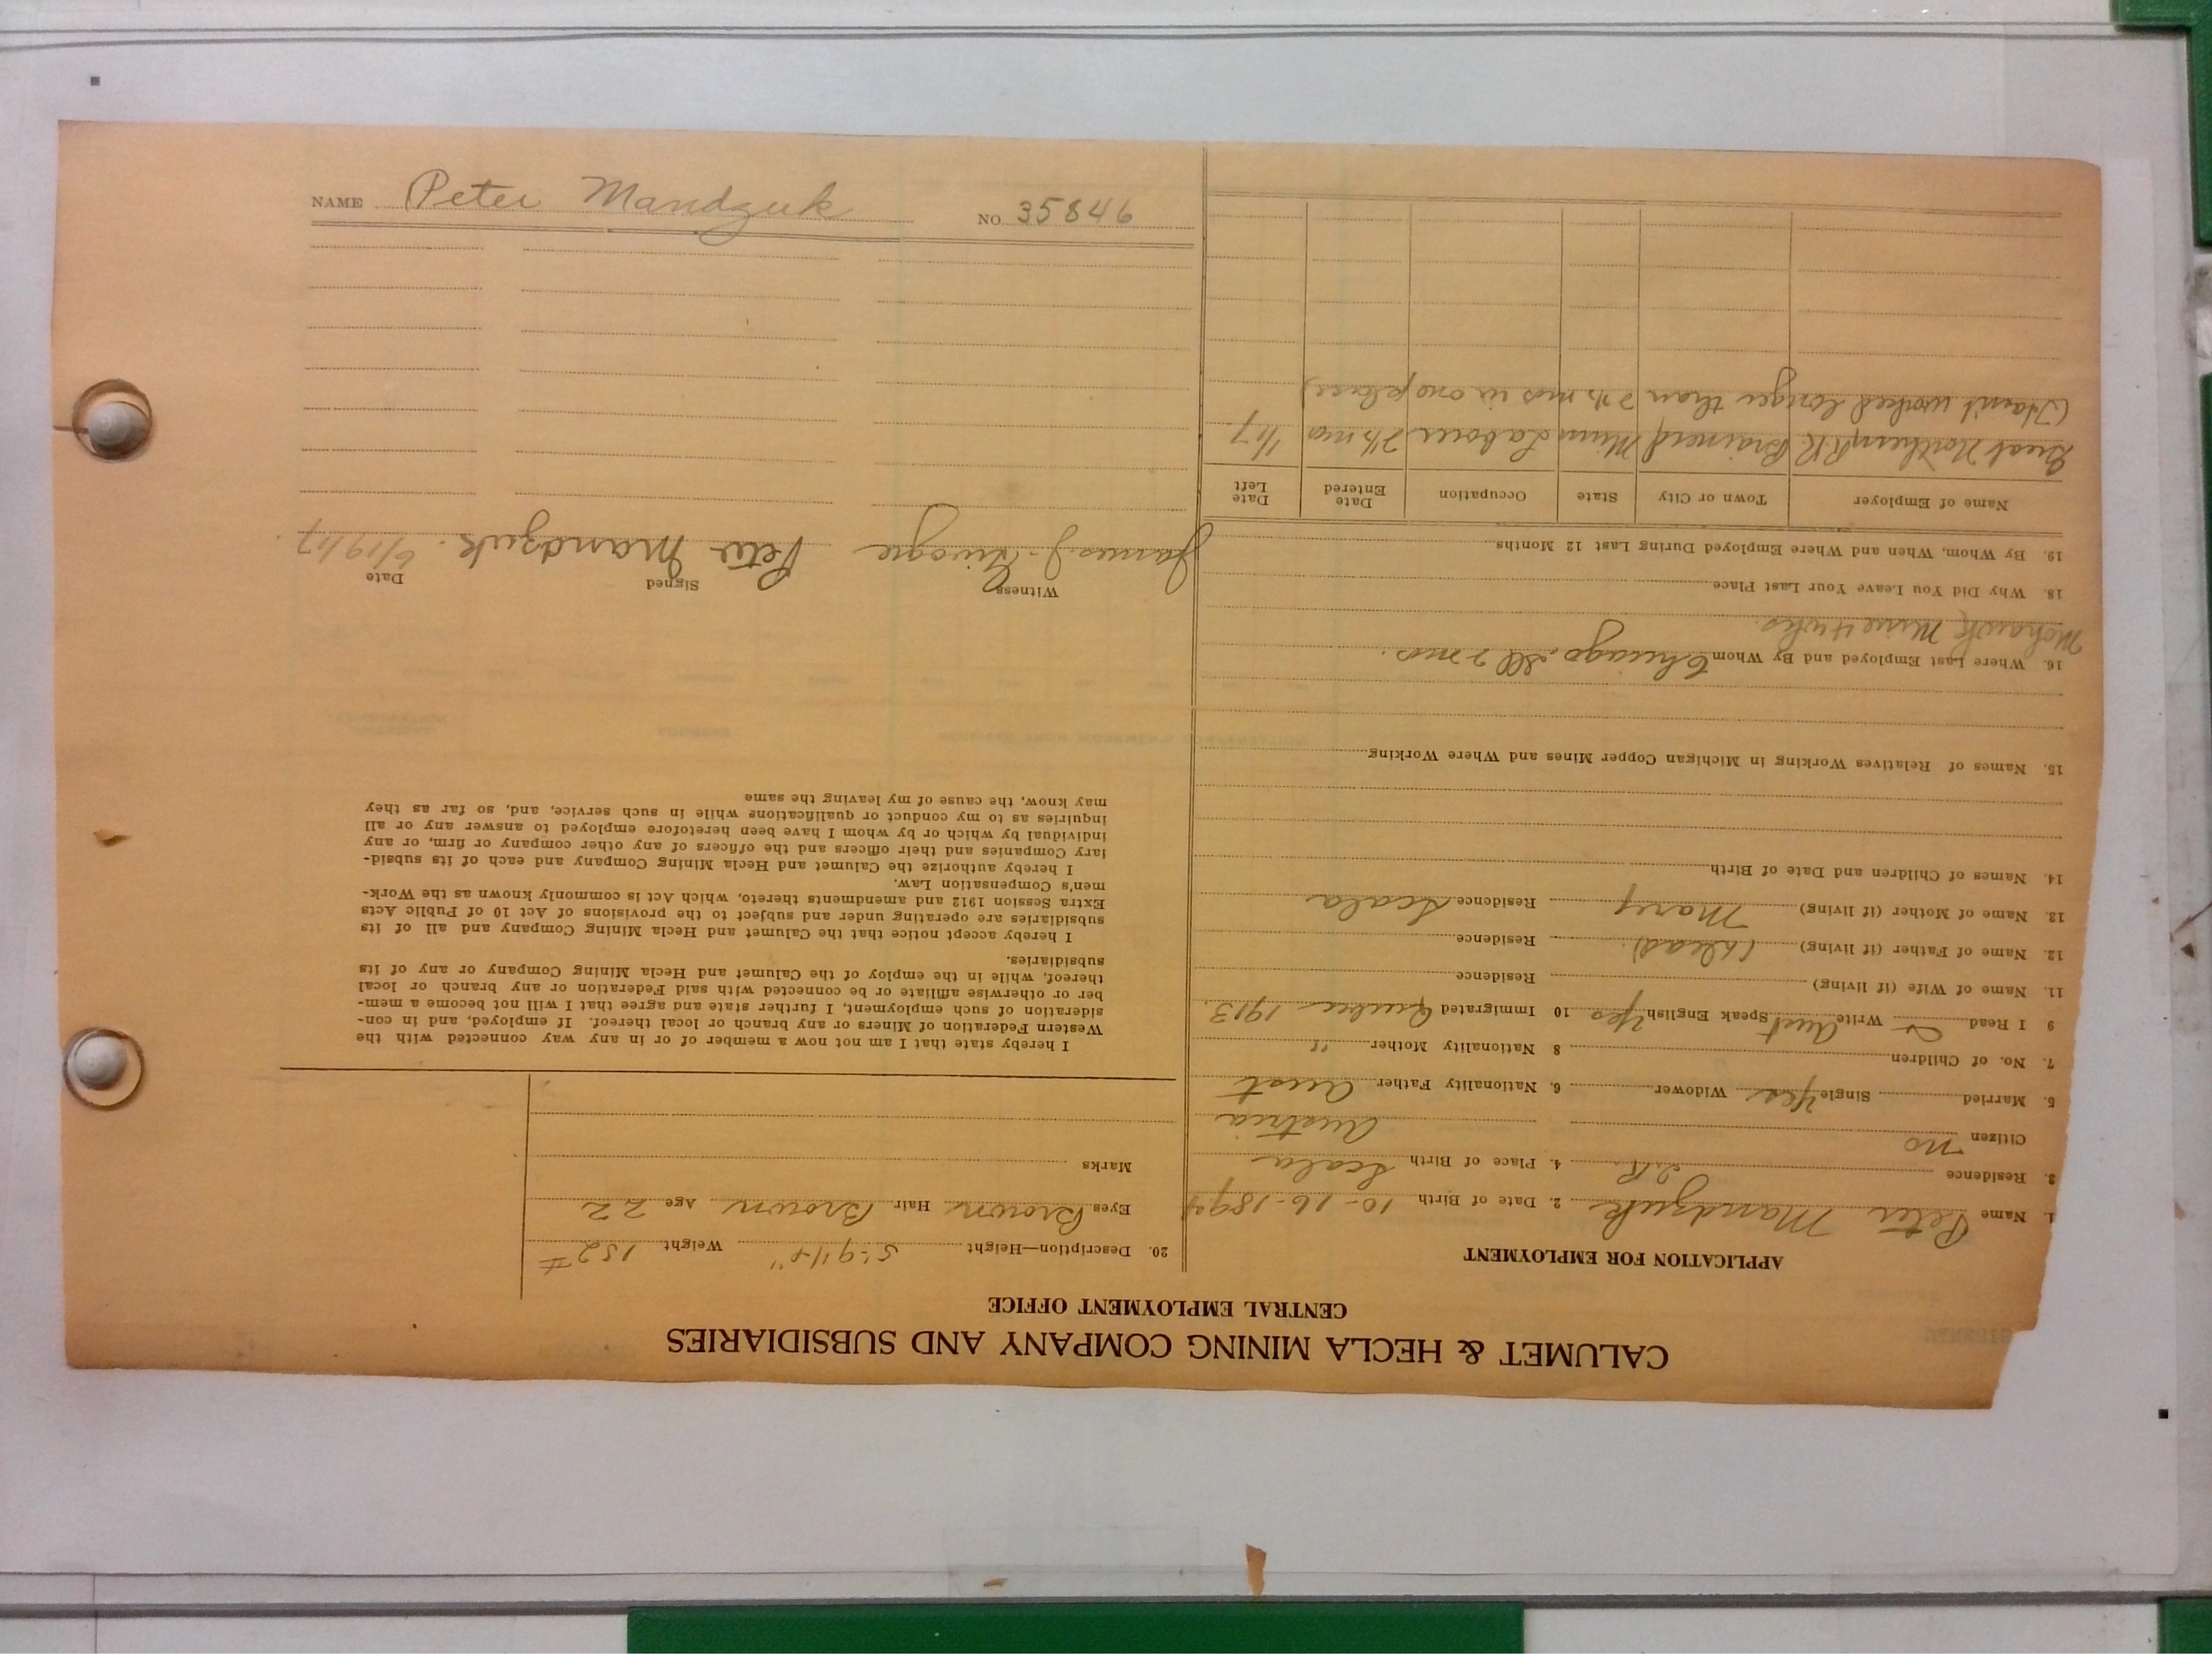 NAME Peter Mandzuk NO. 35846
CALUMET & HECLA MINING COMPANY AND SUBSIDIARIES
CENTRAL EMPLOYMENT OFFICE
APPLICATION FOR EMPLOYMENT
1. Name Peter Mandzuk 2. Date of Birth 10-16-1894
3. Residence 4. Place of Birth Scala
Citizen no Austria
5. Married Single Yes Widower 6. Nationality Father Aust
7. No. of Children 8 Nationality Mother "
9 I Read Write Aust Speak English Yes 10 Immigrated Quebec 1913.
11. Name of Wife (if living) Residence
12. Name of Father (if living) (dead) Residence
13. Name of Mother (if living) Mary Residence Scala
14. Names of Children and Date of Birth
15. Names of Relatives Working in Michigan Copper Mines and Where Working
16. Where Last Employed and By Whom Chicago, Ill 2 mos.
Mohawk Mine 4 wks.
18. Why Did You Leave Your Last Place
19. By Whom, When and Where Employed During Last 12 Months
Name of Employer Town or City State Occupation Date Entered Date Left
Great Northern RR Brainerd Minn Laborer 2½ mos 1/17
(Hasn't worked longer than 2½ mos in one place)
20. Description—Height 5'-9 1/4" Weight 152#
Eyes Brown Hair Brown Age 22
Marks
I hereby state that I am not now a member of or in any way connected with the
Western Federation of Miners or any branch or local thereof. If employed, and in con-
sideration of such employment, I further state and agree that I will not become a mem-
ber or otherwise affiliate or be connected with said Federation or any branch or local
thereof, while in the employ of the Calumet and Hecla Mining Company or any of its
subsidiaries.
I hereby accept notice that the Calumet and Hecla Mining Company and all of its
subsidiaries are operating under and subject to the provisions of Act 10 of Public Acts
Extra Session 1912 and amendments thereto, which Act is commonly known as the Work-
men's Compensation Law.
I hereby authorize the Calumet and Hecla Mining Company and each of its subsid-
iary Companies and their officers and the officers of any other company or firm, or any
individual by which or by whom I have been heretofore employed to answer any or all
inquiries as to my conduct or qualifications while in such service, and, so far as they
may know, the cause of my leaving the same
Witness Signed Date
James J. Peter Mandzuk. 6/19/17